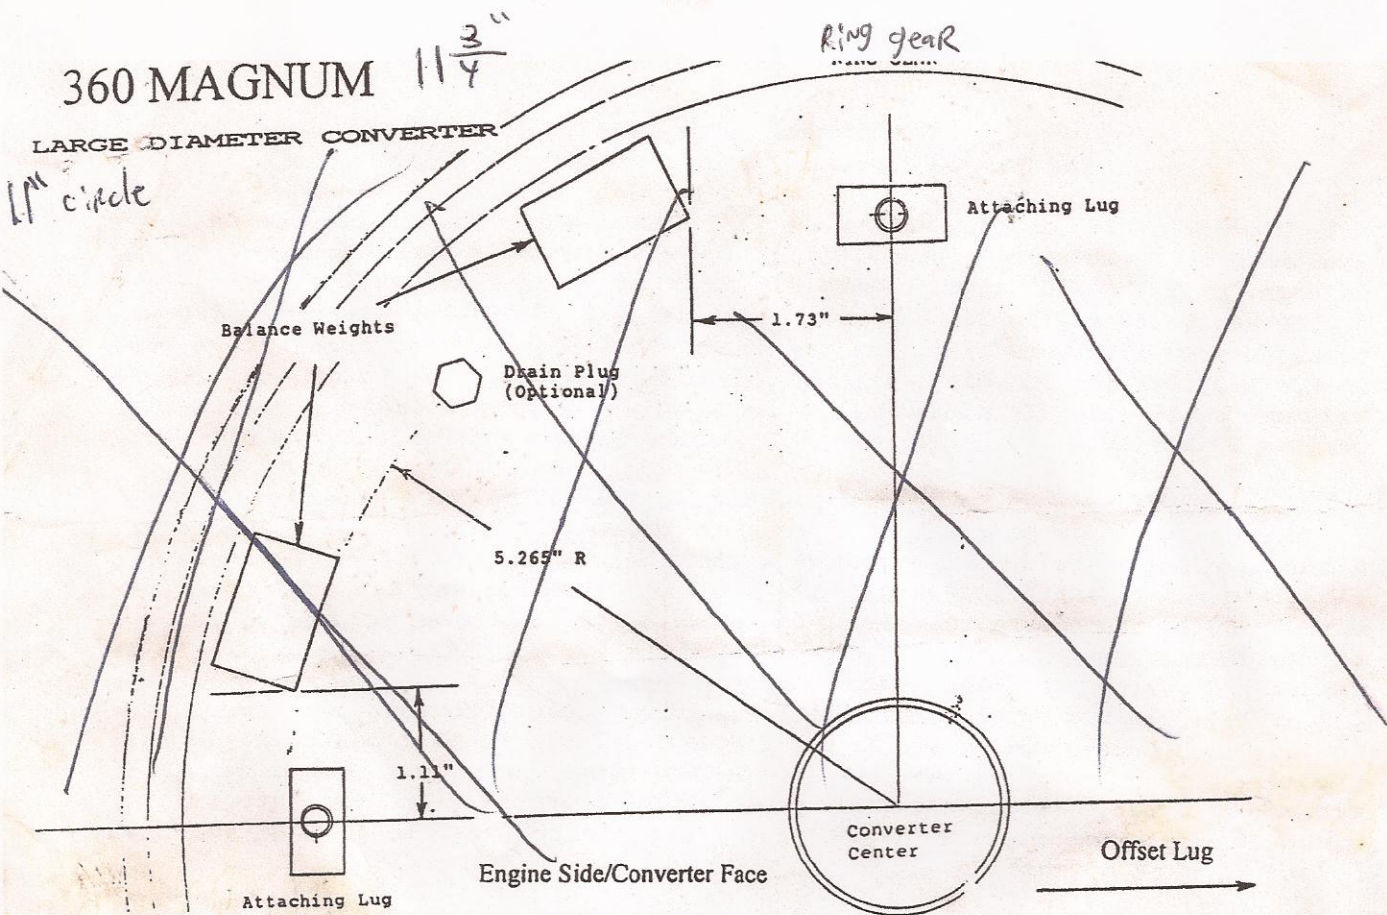 11 3/4"
Ring geaR
360 MAGNUM
LARGE DIAMETER CONVERTER
11" circle
Attaching Lug
1.73"
Balance Weights
Drain Plug
(Optional)
5.265" R
1.11"
Converter
Center
Offset Lug
Engine Side/Converter Face
Attaching Lug